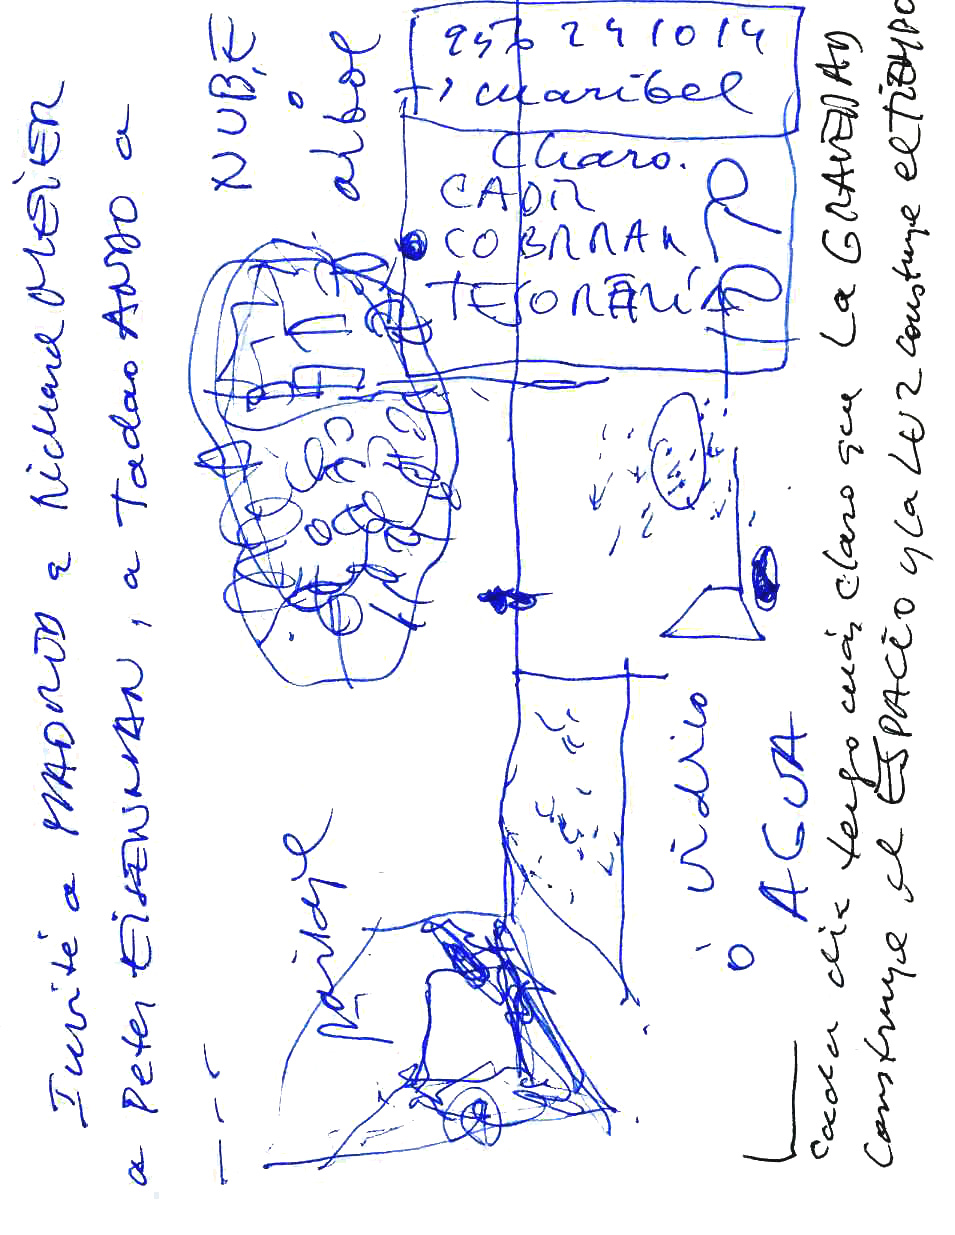 Invité a MADRID a Richard MEIER
a Peter EISENMAN, a Tadao ANDO a
NUBE
ó
árbol
956 241014
Maribel
Charo.
CADIZ
COBRRAR
TESORERIA
paisaje
vidrio
ó AGUA
cada día tengo más claro que La GRAVEDAD
construye el ESPACIO y la LUZ construye el TIEMPO